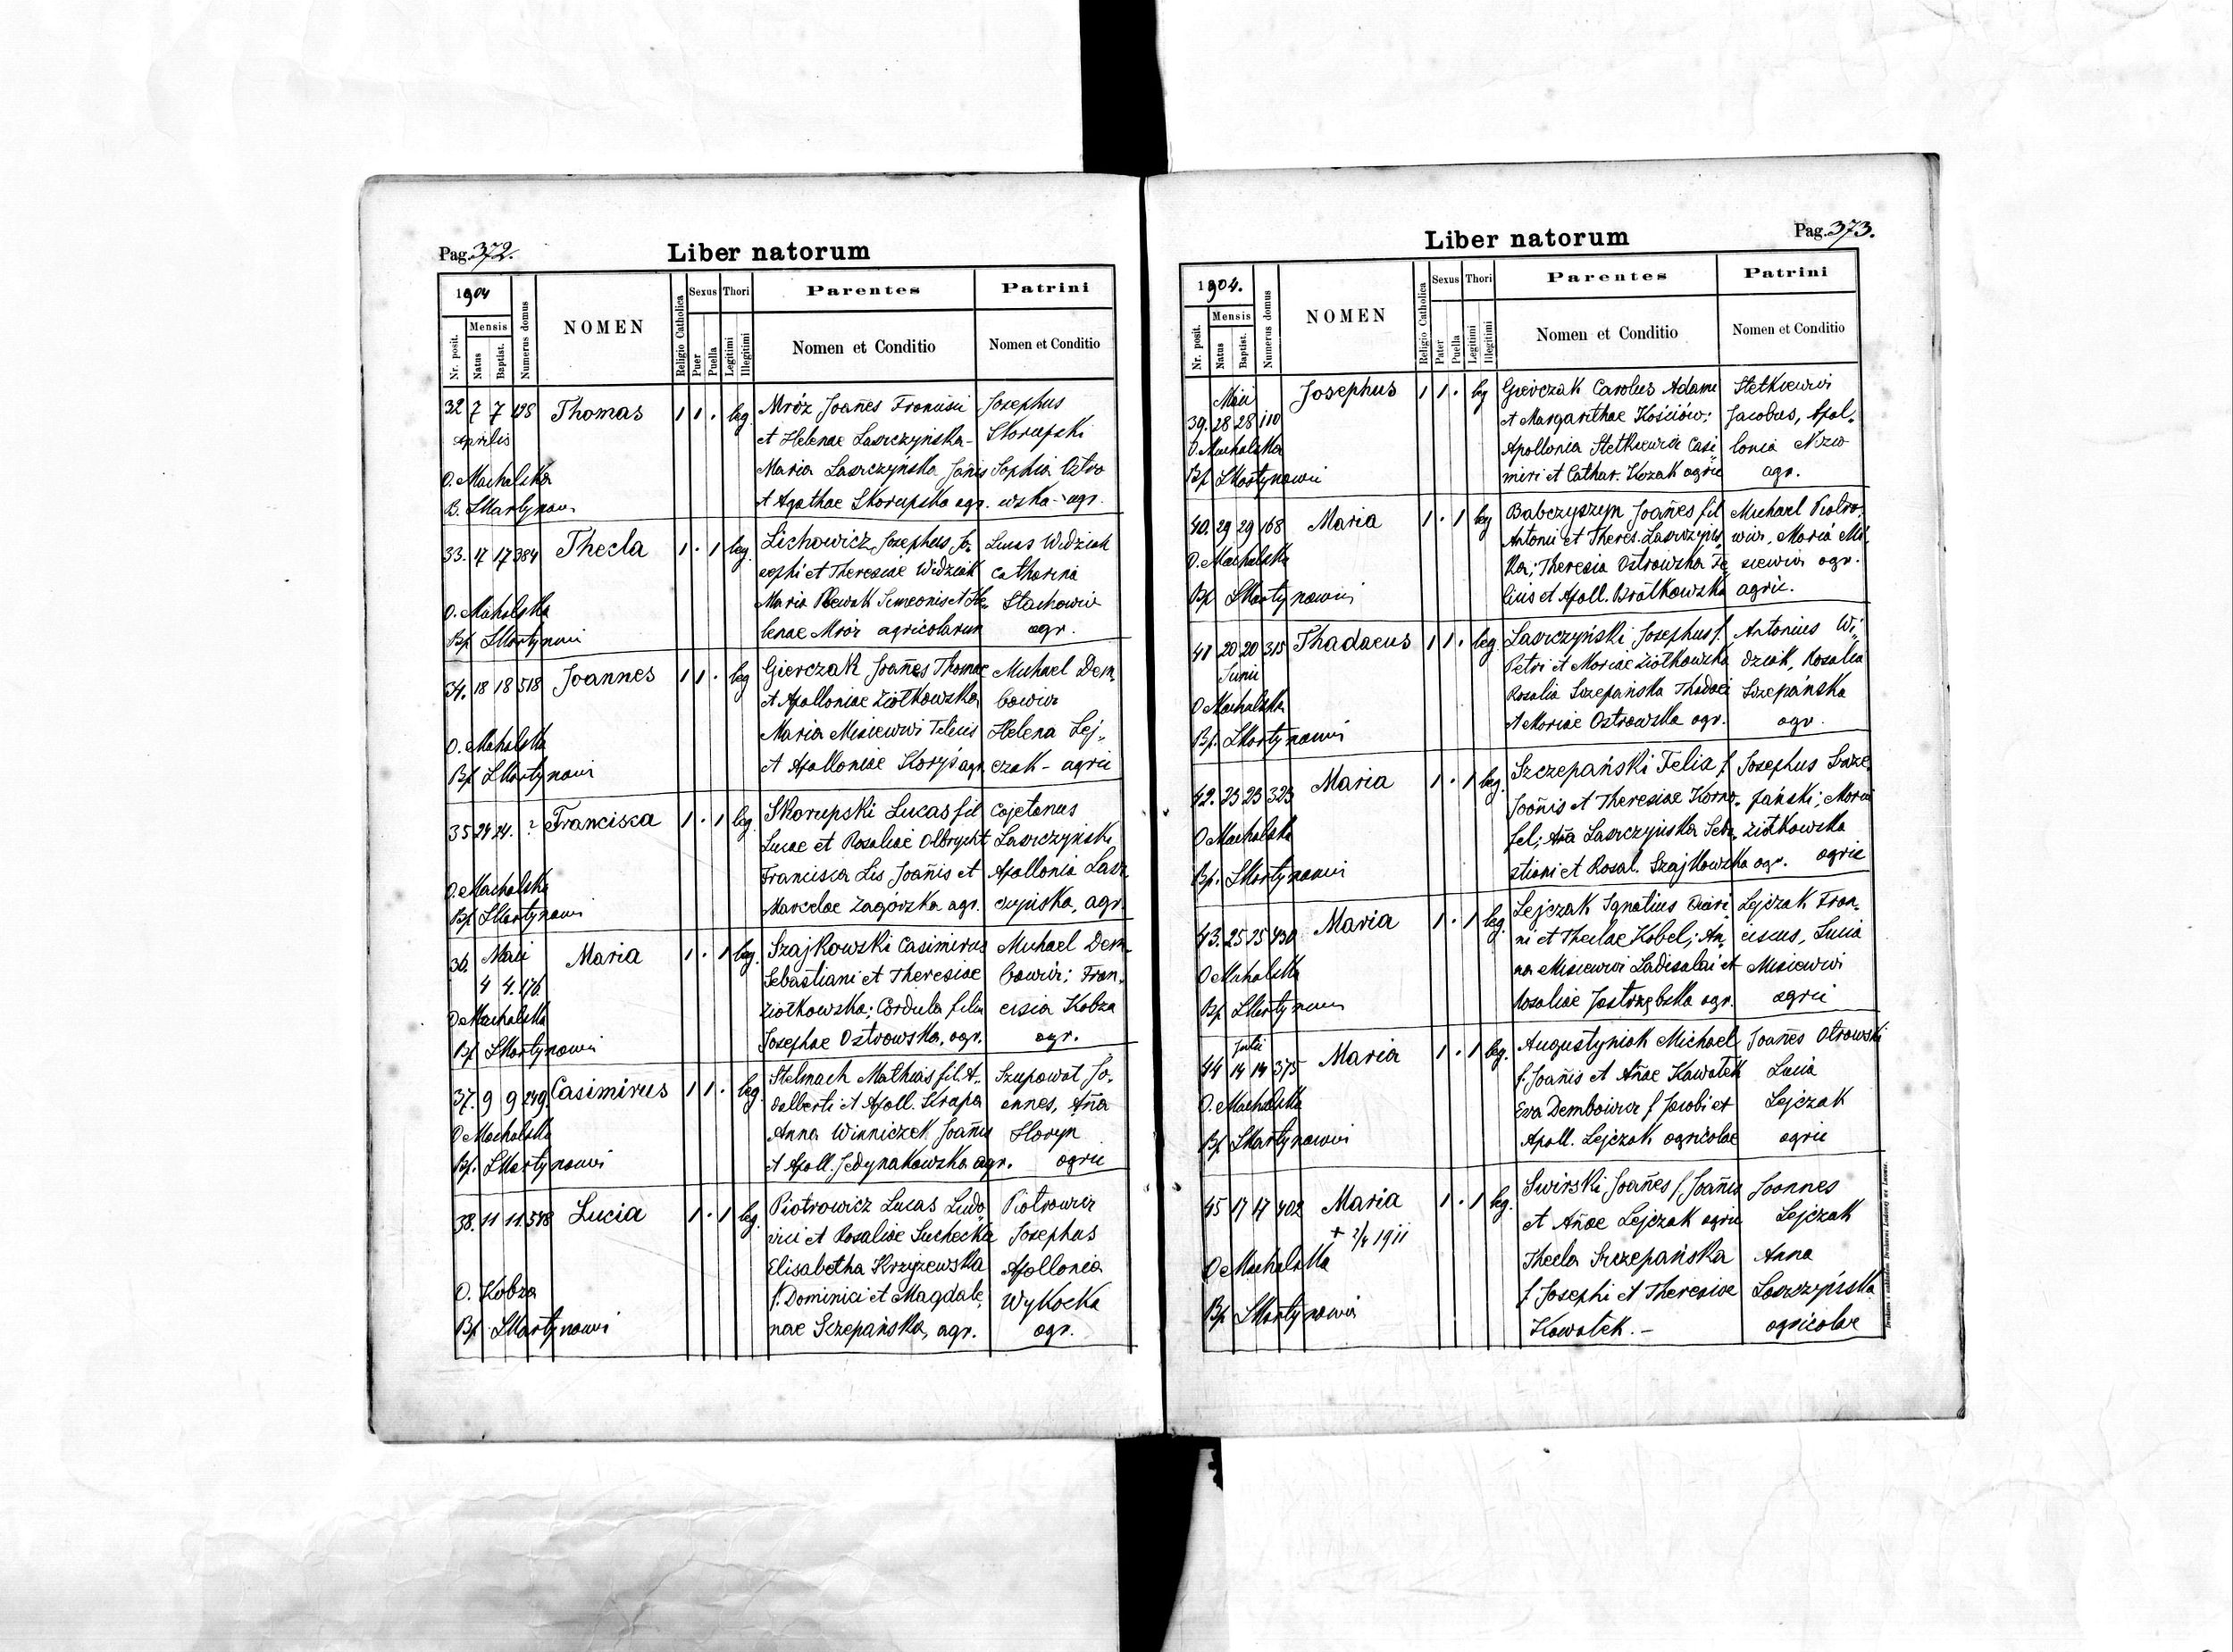 Pag. 372.
Liber natorum
1904
Nr. posit.
Mensis
Natus
Baptist.
Numerus domus
NOMEN
Religio Catholica
Sexus
Puer
Puella
Thori
Legitimi
Illegitimi
Parentes
Nomen et Conditio
Patrini
Nomen et Conditio
32 7 7 Thomas 1 1 . leg. Mróz Joañes Francisci Josephus
Aprilis et Helenae Laszczyńska Skorupski
Maria Laszczyńska Joñis Sophia Ostro
O. Machalska
et Agathae Skorupska agr. wska agr.
B. Martynowi
33. 17 17 384 Thecla 1 . 1 leg. Lichowicz Josephus Jo- Lucas Widziak
sephi et Theresiae Widziak Catharina
Maria Simeonis et He- Stachowicz
O. Machalska
lenae Mróz agricolarum agr.
Bp Martynowi
34. 18 18 518 Joannes 1 1 . leg Gierczak Joañes Thomae Michael Dem-
et Apolloniae Ziółkowska bowicz
Maria Misiewicz Felicis Helena Lej-
O. Machalska
et Apolloniae agr. czak - agric
Bp Martynowi
35 24 24. ? Francisca 1 . 1 leg. Skorupski Lucas fil Cajetanus
Lucae et Rosaliae Olbrycht Laszczyński
Francisca Lis Joañis et Apollonia Lasz-
O. Machalska
Marcelae Zagórska agr. czyńska, agr.
Bp Martynowi
36. Maii Maria 1 . 1 leg. Szajkowski Casimirus Michael Dem-
4 4. 176. Sebastiani et Theresiae bowicz; Fran-
Ziółkowska; Cordula filia cisca Kobza
O Machalska
Josephae Ostrowska, agr. agr.
Bp Martynowi
37. 9 9 249. Casimirus 1 1 . leg. Stelmach Mathias fil. A-
dalberti et Apoll. Szupowat Jo-
annes, Aña
O Machalska
Anna Winniczek Joañis
Bp. Martynowi
et Apoll. Jedynakowska agr. agric
38. 11 11 548 Lucia 1 . 1 leg. Piotrowicz Lucas Ludo- Piotrowicz
vici et Rosaliae Suchecka Josephus
Elisabetha Krzyżewska Apollonia
O. Kobza
f. Dominici et Magdale- Wykocka
Bp Martynowi
nae Szczepańska, agr. agr.
Pag. 373.
Liber natorum
1904.
Nr. posit.
Mensis
Natus
Baptist.
Numerus domus
NOMEN
Religio Catholica
Sexus
Pater
Puella
Thori
Legitimi
Illegitimi
Parentes
Nomen et Conditio
Patrini
Nomen et Conditio
Maii Josephus 1 1 . leg Gierczak Carolus Adami Stetkiewicz
39. 28 28 110 et Margarethae Kościów; Jacobus, Apol-
O Machalska
Apollonia Stetkiewicz Casi- lonia
Bp Martynowi
miri et Cathar. Kozak agric agr.
40. 29 29 168 Maria 1 . 1 leg Babczyszyn Joañes fil Michael Piotro-
Antonii et Theres. Laszczyńs- wicz, Maria Mi-
O. Machalska
ka; Theresia Ostrowska Fe- siewicz agr.
Bp Martynowi
licis et Apoll. Bratkowska agric.
41 20 20 315 Thadaeus 1 1 . leg. Laszczyński Josephus f. Antonius Wi-
Junii Petri et Mariae Ziółkowska dziak, Rosalia
O Machalska
Rosalia Szczepańska Thadaei Szczepańska
Bp. Martynowi
et Mariae Ostrowska agr. agr.
42. 23 23 323 Maria 1 . 1 leg. Szczepański Felix f. Josephus Szcze-
Joañis et Theresiae Korno- pański; Maria
O Machalska
fel; Aña Laszczyńska Seba- Ziółkowska
Bp. Martynowi
stiani et Rosal. Szajkowska agr. agric
43. 25 25 430 Maria 1 . 1 leg. Lejczak Ignatius Lejczak Fran-
ni et Theclae Kobel; An- ciscus, Lucia
O Machalska
na Misiewicz Ladislai et Misiewicz
Bp Martynowi
Rosaliae Jastrzębska agr. agric
Julii
44 14 14 375 Maria 1 . 1 leg. Augustyniak Michael Joañes Otrowski
f. Joañis et Añae Kawałek Lucia
O. Machalska
Eva Dembowicz f Jacobi et Lejczak
Bp Martynowi
Apoll. Lejczak agricolae agric
45 17 17 402 Maria 1 . 1 leg. Swirski Joañes f. Joañis Joannes
+ 2/4 1911 et Añae Lejczak agric Lejczak
O Machalska
Thecla Szczepańska Anna
Bp Martynowi
f Josephi et Theresiae Laszczyńska
Kawałek. - agricolae